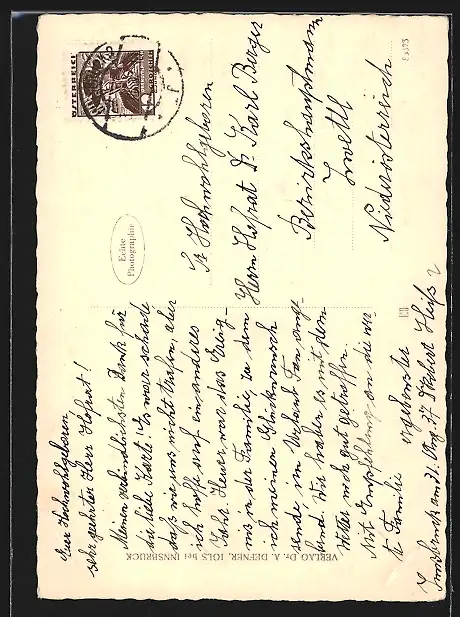 Euer Hochwohlgeboren
sehr geehrter Herr Hofrat!
Meinen verbindlichsten Dank für
die liebe Karte! Es war schade
daß wir uns nicht trafen, aber
ich hoffe auf ein anderes
Jahr. Heuer war das Ereig-
nis in der Familie, zu dem
ich meinen Glückwunsch
sende im
und. Wir haben es mit dem
Wetter noch gut getroffen
Mit Empfehlung an die wer-
te Familie ergebenster
Innsbruck am 31. Aug. 37
Echte
Photographie
VERLAG Dr. A. DEFNER, IGLS bei INNSBRUCK
ÖSTERREICH
Sr Hochwohlgeboren
Herrn Hofrat Dr. Karl Berger
Bezirkshauptmann
Zwettl
Niederösterreich